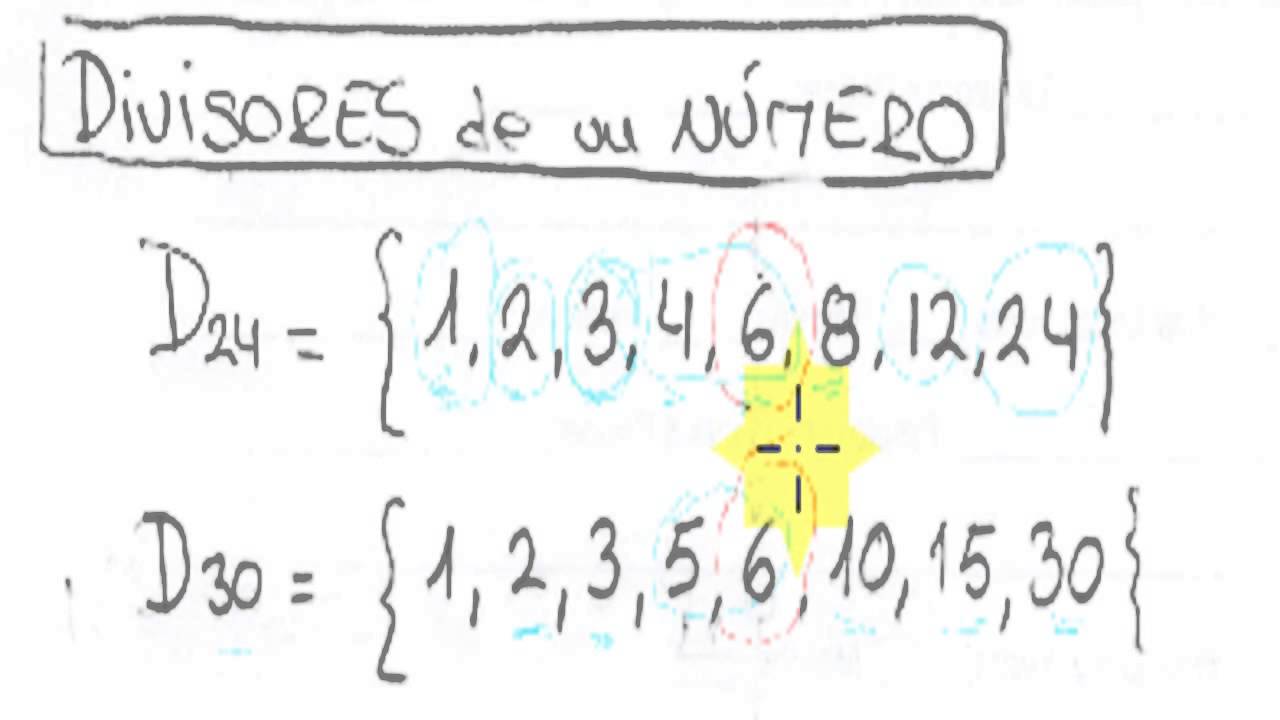 DiViSORES de un NÚMERO
D24 = {1, 2, 3, 4, 6, 8, 12, 24}
D30 = {1, 2, 3, 5, 6, 10, 15, 30}